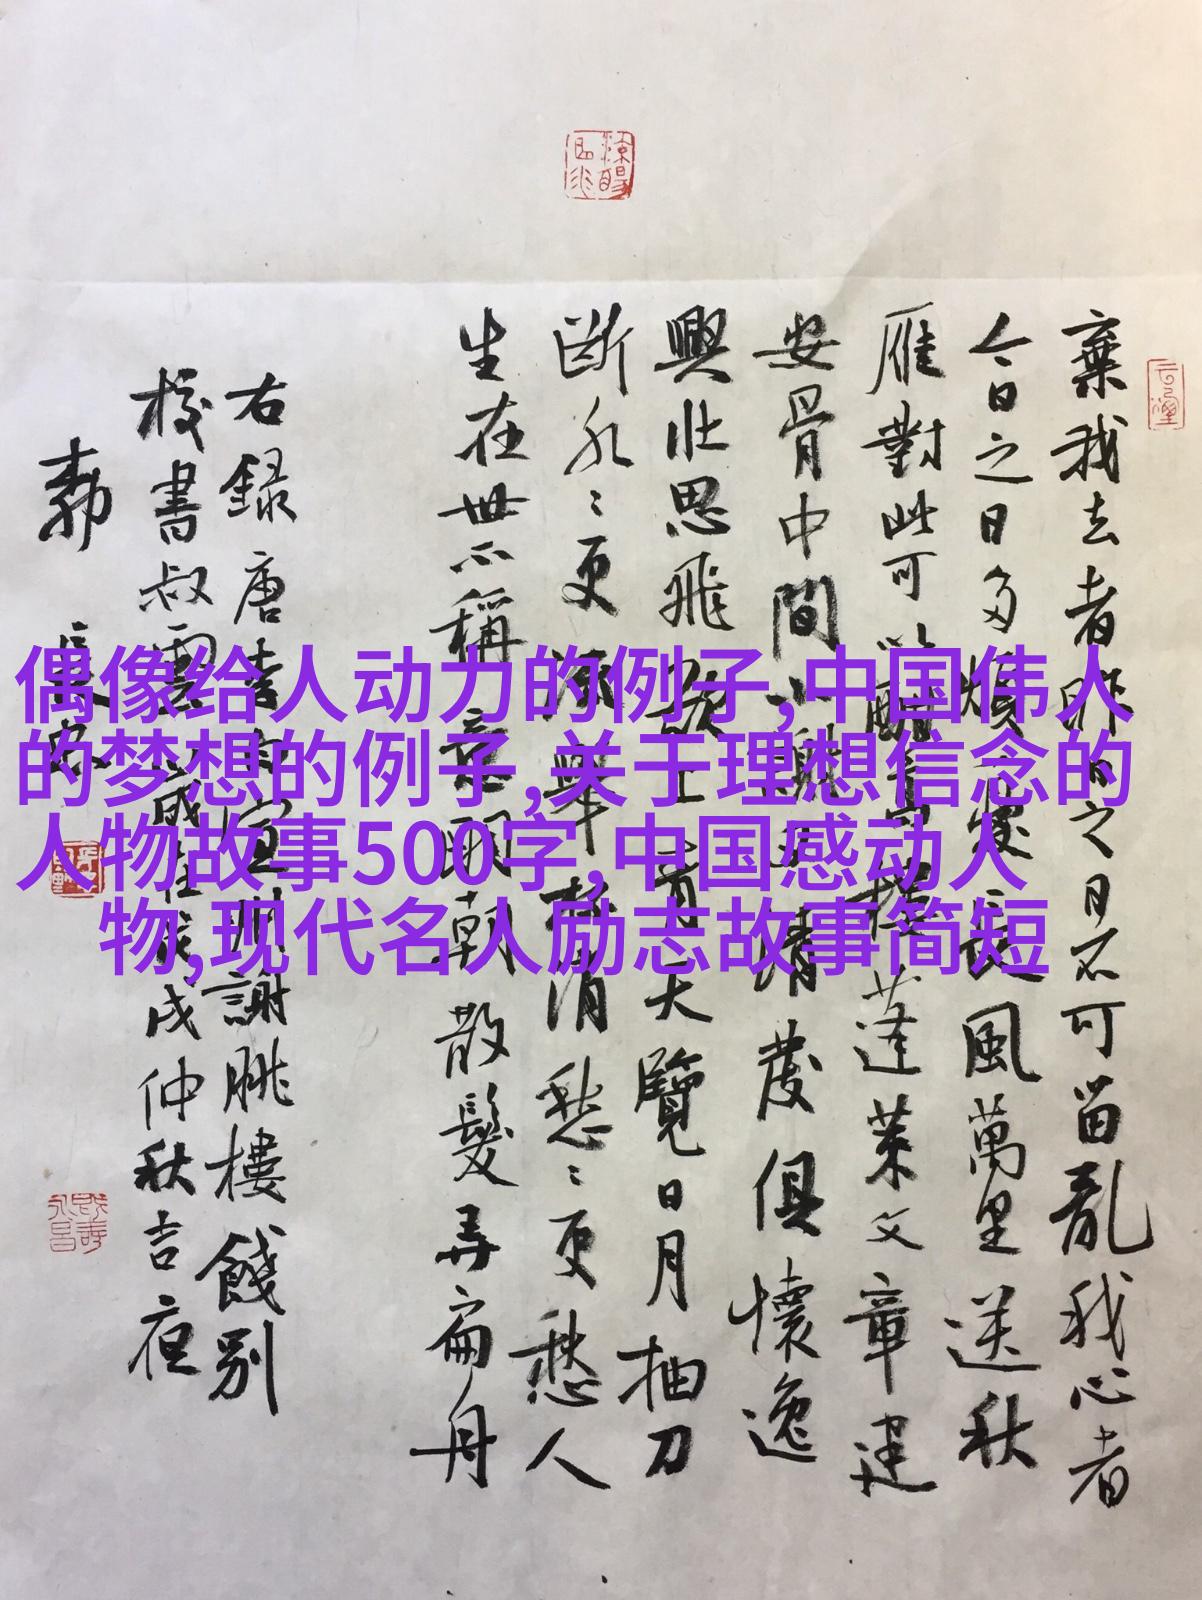 偶像给人动力的例子,中国伟人
的梦想的例子,关于理想信念的
人物故事500字,中国感动人
物,现代名人励志故事简短
棄我去者昨日之日不可留亂我心者
今日之日多煩憂長風萬里送秋
雁對此可以酣高樓蓬萊文章建
安骨中間小謝又清發俱懷逸
興壯思飛欲上青天覽日月抽刀
斷水〻更流舉杯消愁〻更愁人
生在世不稱意明朝散髮弄扁舟
右録唐李白宣州謝朓樓餞別
校書叔雲歲在戊戌仲秋吉夜